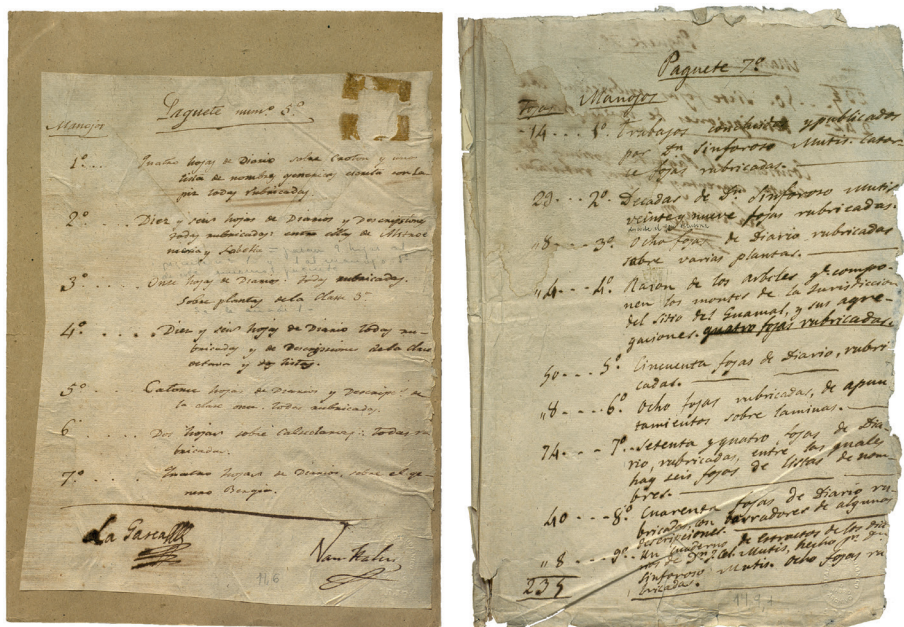 Paquete num.º 5.º
Manojos
1º Quatro hojas de Diario sobre Caston y una
lista de nombres genericos escrita con la
todas rubricadas.
2º Diez y seis hojas de Diarios y Descripciones
todas rubricadas: entre ellas de
y
3º Once hojas de Diarios todas rubricadas.
Sobre plantas de la Clase 5ª
4º Diez y seis hojas de Diario todas ru-
bricadas y de Descripciones de la clase
octava y de listas.
5º Catorce hojas de Diarios y Descripc.s de
la clase once. todas rubricadas.
6 Dos hojas sobre Calceolarias: todas ru-
bricadas.
7º Quatro hojas de Diarios, sobre el ge-
nero
La Gasca
116
Paquete 7º
Fojas Manojos
14 1º Trabajos concluidos y publicados
por Dn Sinforoso Mutis. Cator-
ce fojas rubricadas.
29 2º Decadas de Dn Sinforoso Mutis
veinte y nueve fojas rubricadas.
"8 3º Ocho fojas de Diario rubricadas
sobre varias plantas.
"4 4º Razon de los arboles qe compo-
nen los montes de la Jurisdiccion
del Sitio del Guamal, y sus agre-
gaciones. quatro fojas rubricadas.
50 5º Cincuenta fojas de Diario, rubri-
cadas.
"8 6º Ocho fojas rubricadas, de apun-
tamientos sobre laminas.
74 7º Setenta y quatro fojas de Dia-
rio, rubricadas, entre las quales
hay seis fojas de listas de nom-
bres.
40 8º Cuarenta fojas de Diario ru-
bricadas, con borradores de algunas
descripciones.
"8 9º Un quaderno de extractos de los dia-
rios de Dn Cel. Mutis, hecho pr Dn
Sinforoso Mutis. Ocho fojas ru-
bricadas.
235